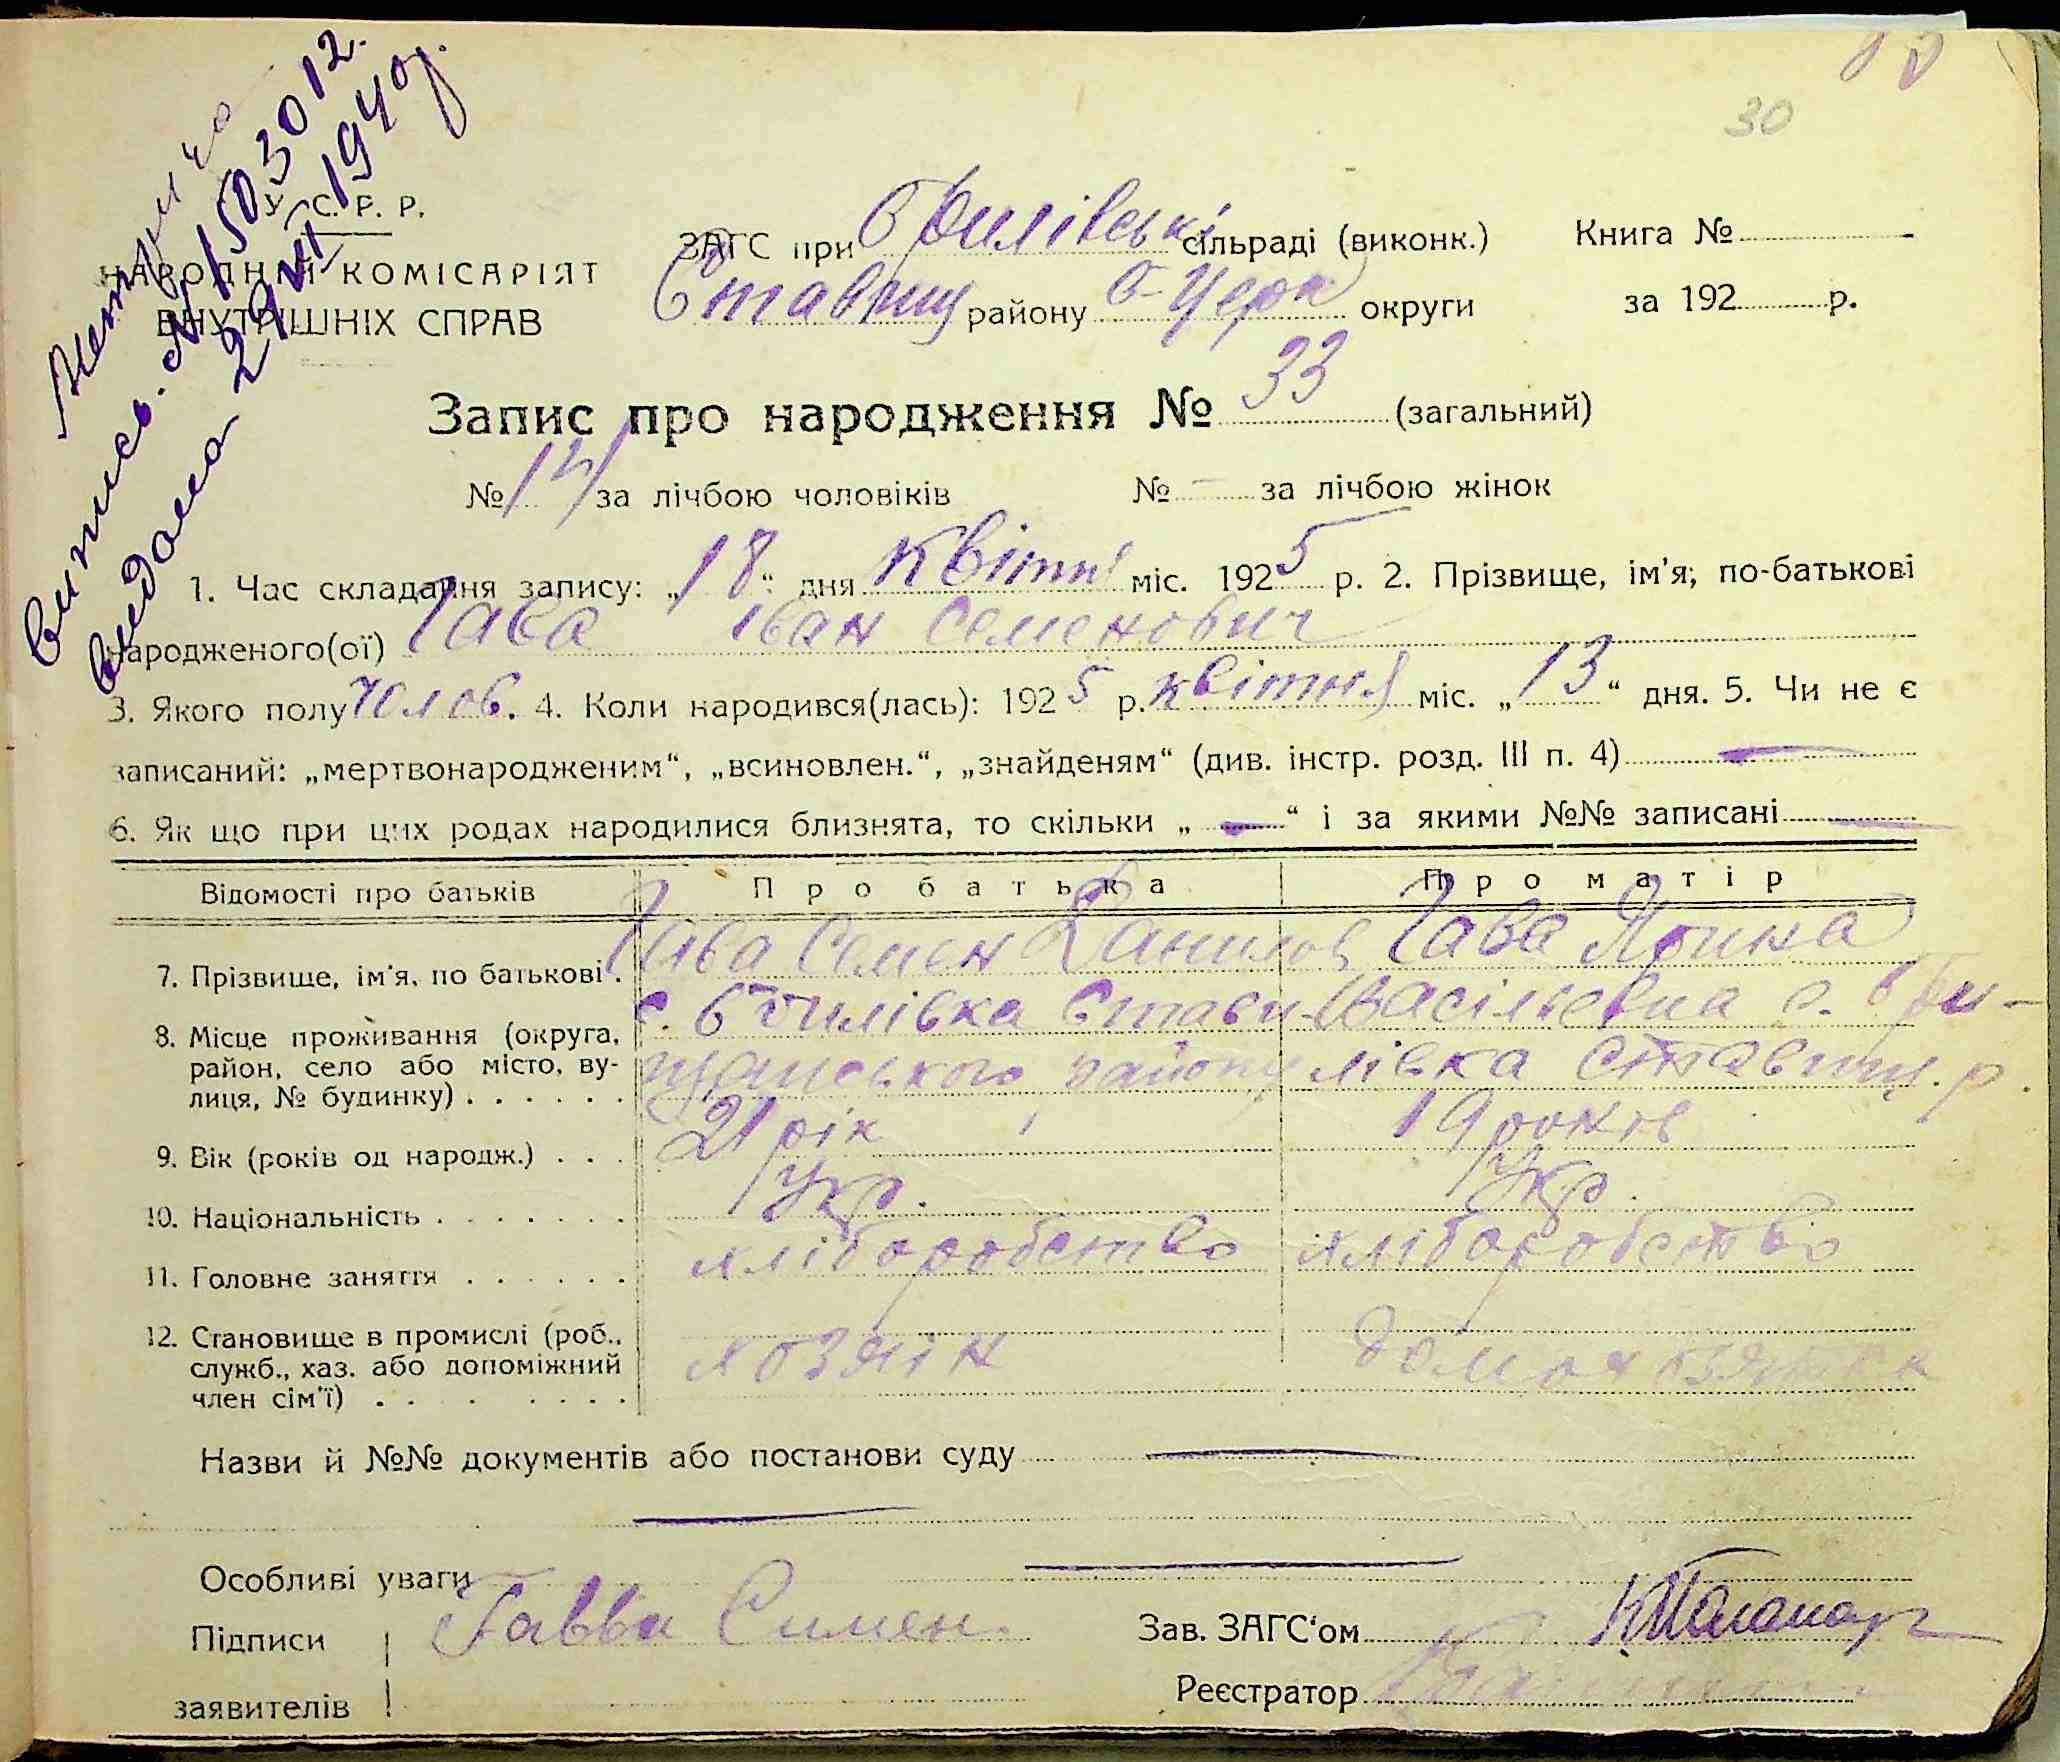 30
Метрична
випись. № 153012.
видана 29/VII 1940 р.
У. С. Р. Р.
НАРОДНИЙ КОМІСАРІЯТ
ВНУТРІШНІХ СПРАВ
ЗАГС при сільраді (виконк.) Книга №
Ставищ району Б-Церк округи за 192 р.
Запис про народження № 33 (загальний)
№ за лічбою чоловіків № — за лічбою жінок
1. Час складання запису: „18“ дня квітня міс. 1925 р. 2. Прізвище, ім'я, по-батькові
народженого(ої) Гава Іван Семенович
3. Якого полу чолов. 4. Коли народився(лась): 1925 р. квітня міс. „13“ дня. 5. Чи не є
записаний: „мертвонародженим“, „всиновлен.“, „знайденям“ (див. інстр. розд. III п. 4) —
6. Як що при цих родах народилися близнята, то скільки „—“ і за якими №№ записані —
Відомості про батьків Про батька Про матір
7. Прізвище, ім'я, по батькові. Гава Семен Данилов Гава Ярина
Васілієвна с.
8. Місце проживання (округа, район, село або місто, вулиця, № будинку) с. Ставищанського району лівка Ставищ. р.
9. Вік (років од народж.) 21 рік 19 років
10. Національність Укр. Укр.
11. Головне заняття хліборобство хліборобство
12. Становище в промислі (роб., служб., хаз. або допоміжний член сім'ї) хозяїн домохозяйка
Назви й №№ документів або постанови суду —
—
Особливі уваги —
Підписи Гавва Симен Зав. ЗАГС'ом КПаламар
заявителів Реєстратор